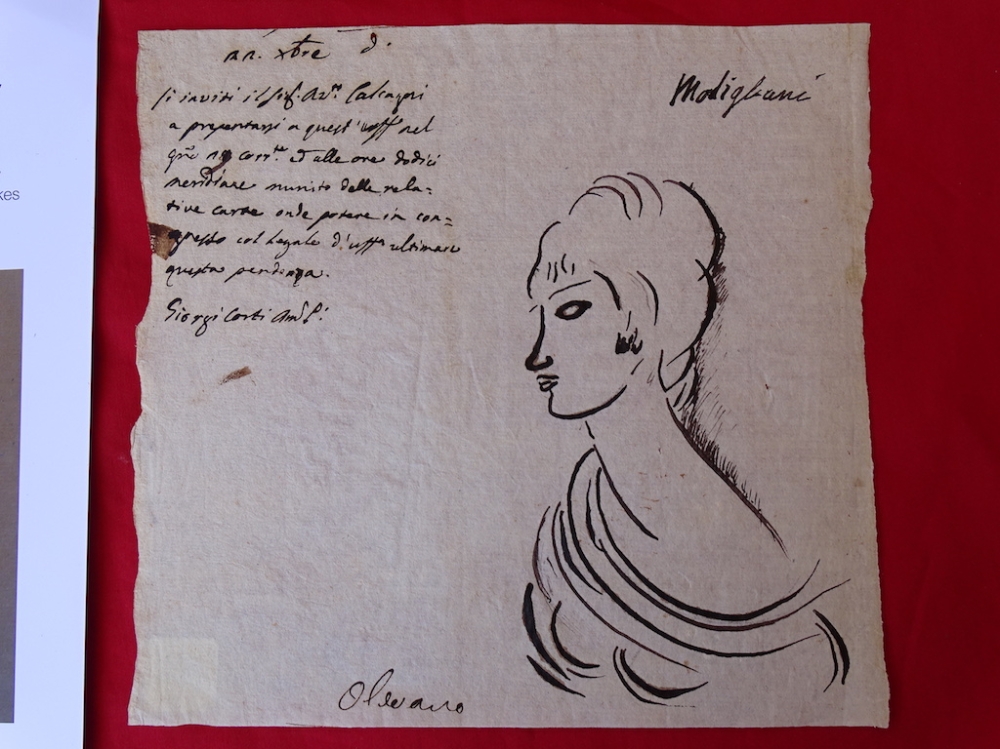 xbre d.
Si inviti il Sig. Avv. Calcagni
a presentarsi a quest'uff° nel
corr.te ed alle ore dodici
meridiane munito delle rela=
tive carte onde potere in con=
gresso col Legale d'uff° ultimare
questa pendenza.
Giorgi Corti
Modigliani
Olevano
kes